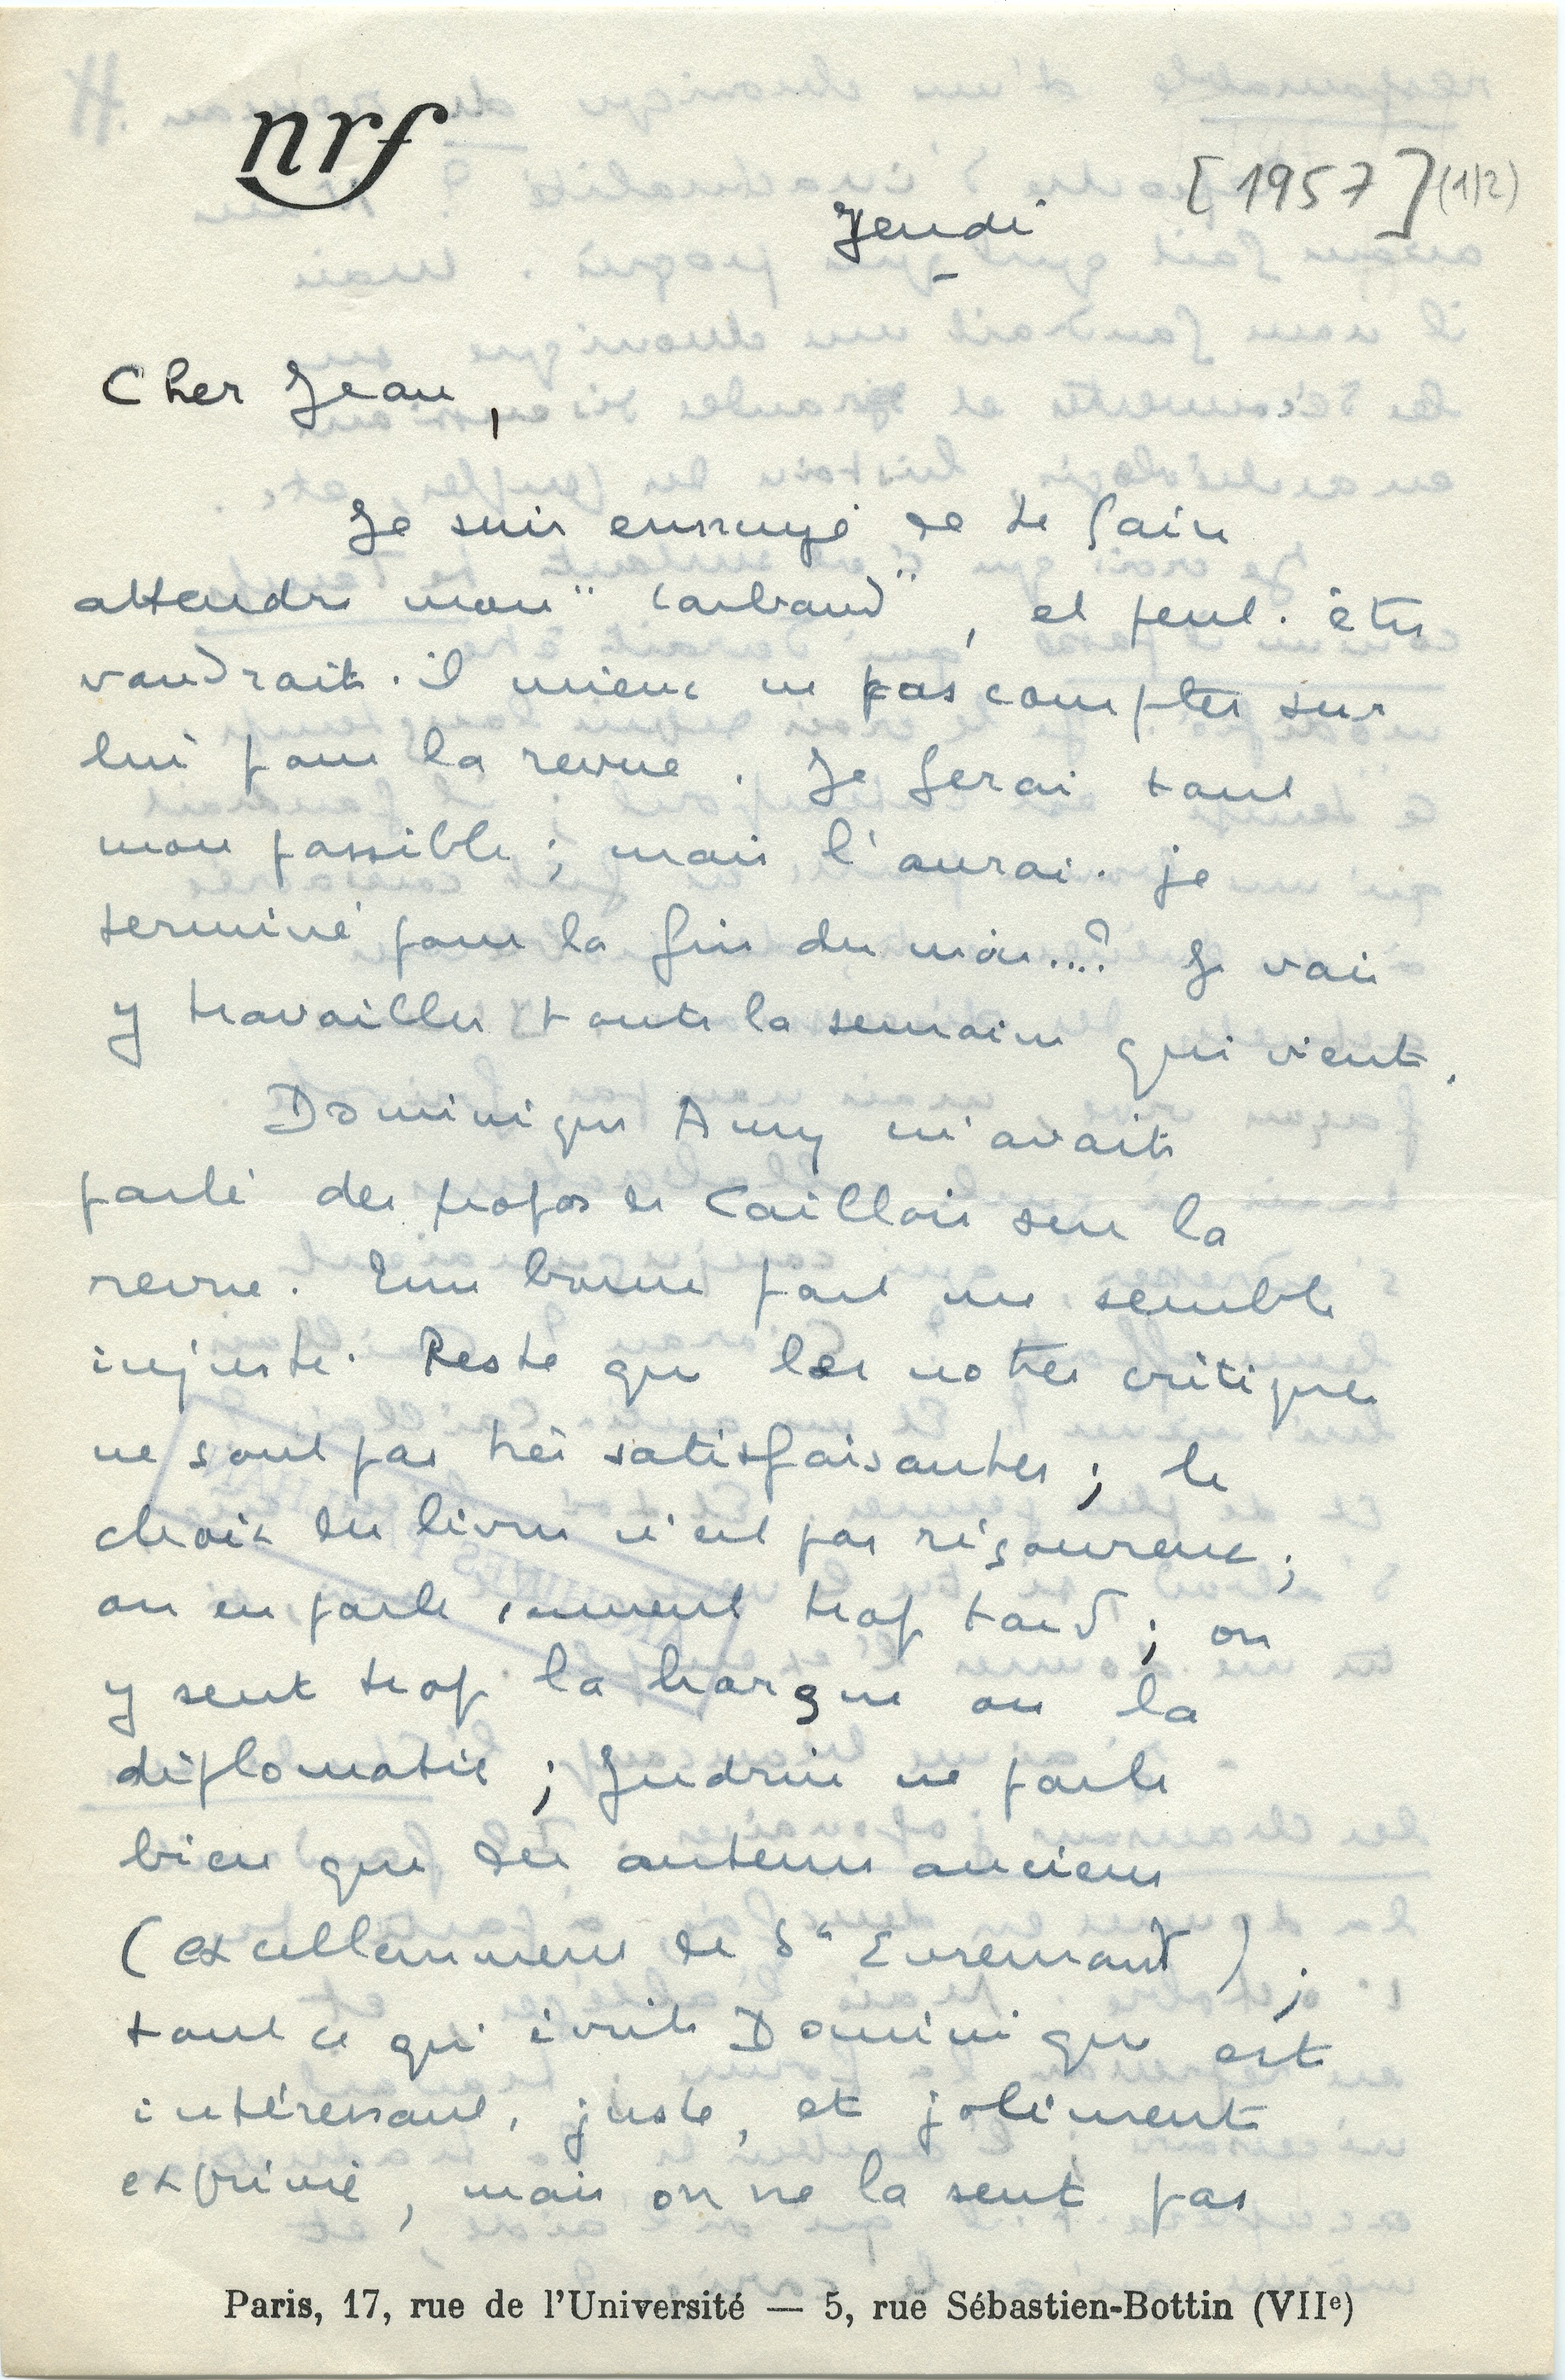 nrf
[1957] (1/2)
Jeudi
Cher Jean,
Je suis ennuyé de te faire
attendre mon "Larbaud", et peut-être
vaudrait-il mieux ne pas compter sur
lui pour la revue. Je ferai tout
mon possible ; mais l'aurai-je
terminé pour la fin du mois...? Je vais
y travailler toute la semaine qui vient.
Dominique Aury m'avait
parlé des propos de Caillois sur la
revue. Une bonne part me semble
injuste. Reste que les notes critiques
ne sont pas très satisfaisantes ; le
choix des livres n'est pas rigoureux ;
on en parle souvent trop tard ; on
y sent trop la hargne ou la
diplomatie ; Judrin ne parle
bien que des auteurs anciens
(excellemment de St Evremont) ;
tout ce qu'écrit Dominique est
intéressant, juste, et joliment
exprimé, mais on ne la sent pas
Paris, 17, rue de l'Université — 5, rue Sébastien-Bottin (VIIe)